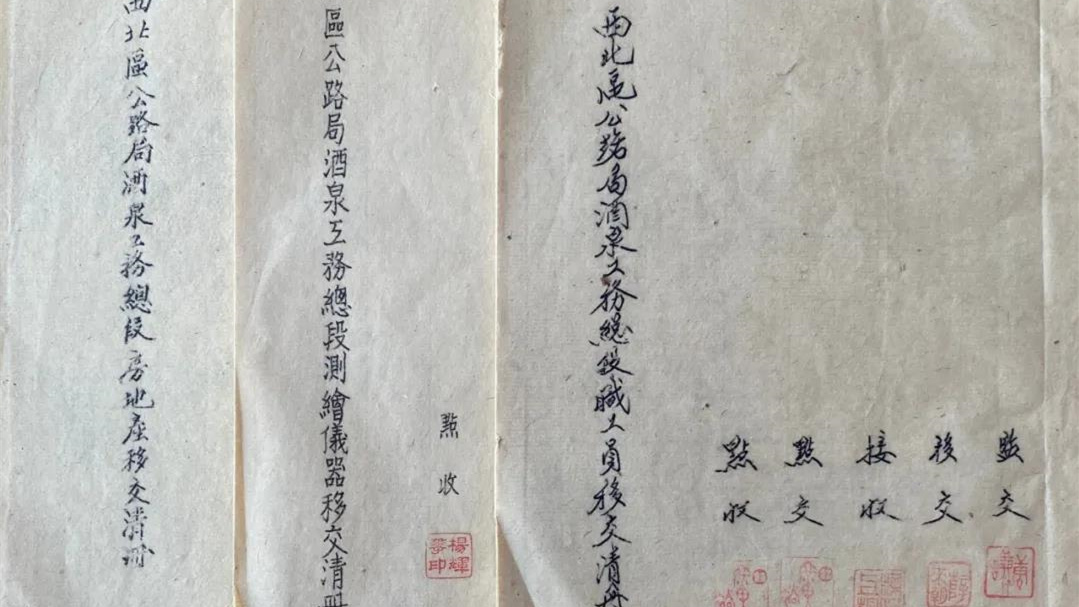 西北區公路局酒泉工務總段職工員移交清冊
監交
移交
接收
點交
點收
區公路局酒泉工務總段測繪儀器移交清冊
點收
楊輝
印
西北區公路局酒泉工務總段房地產移交清冊